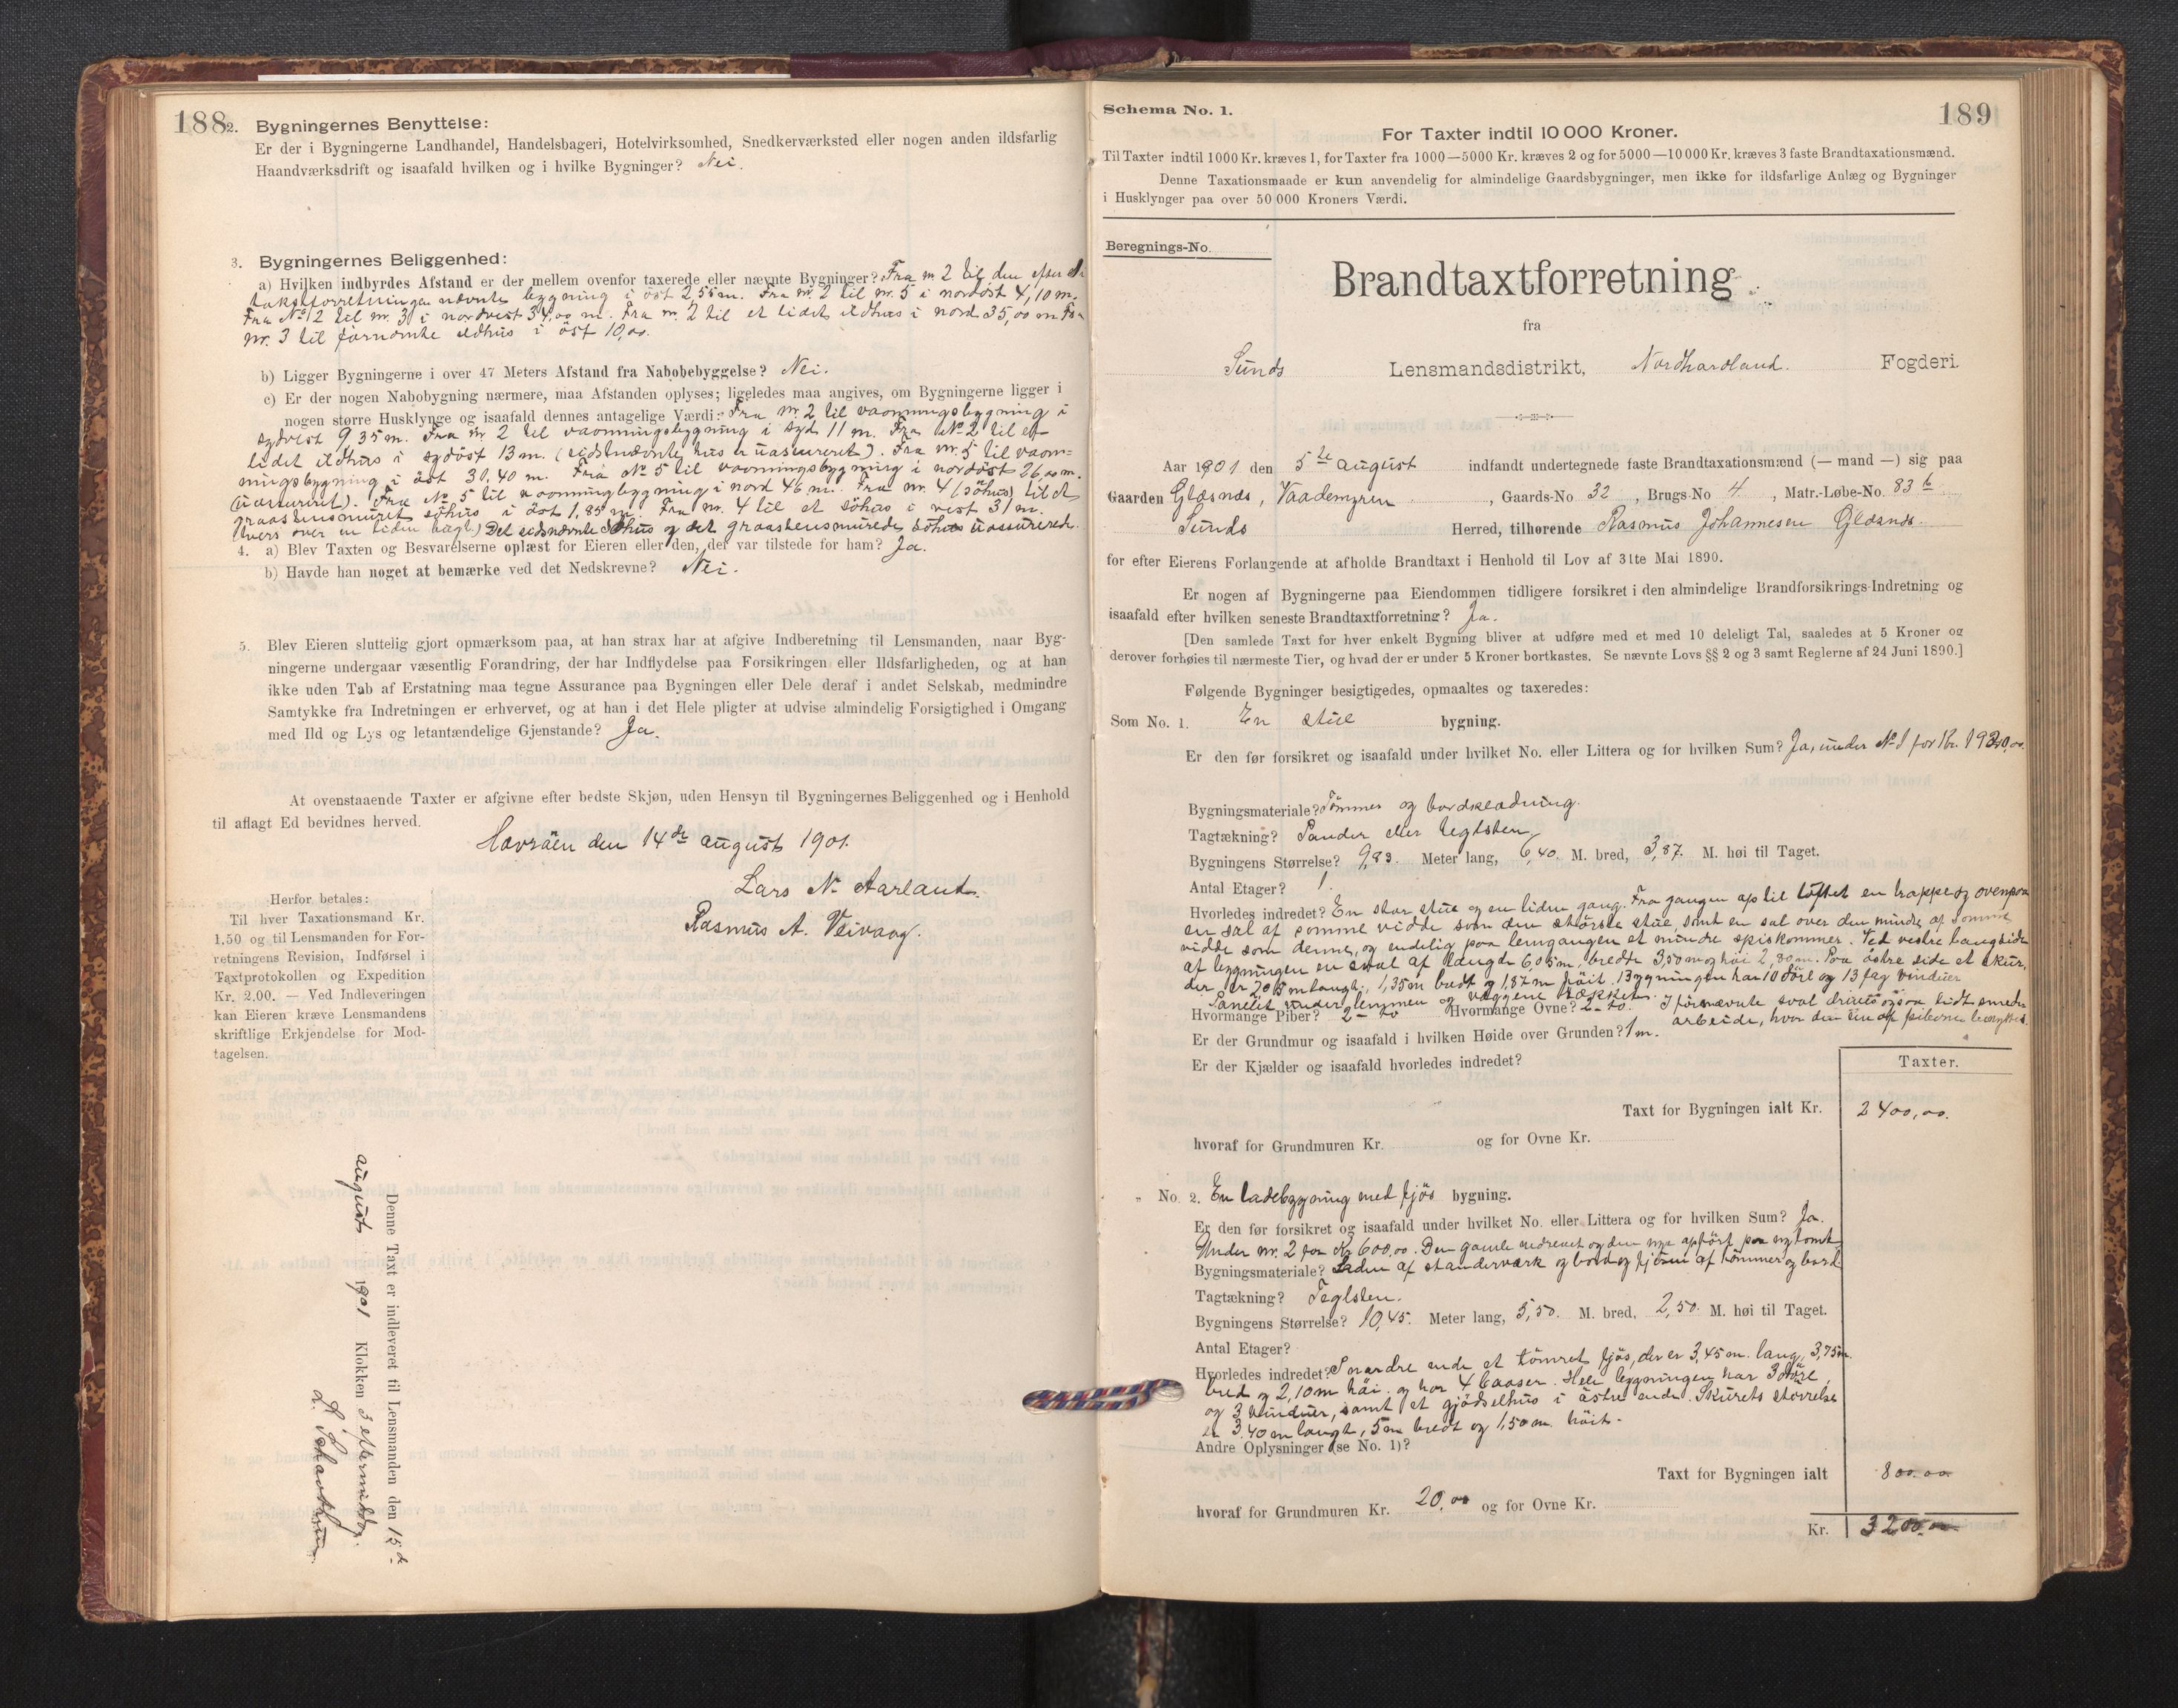 188
2. Bygningernes Benyttelse:
Er der i Bygningerne Landhandel, Handelsbageri, Hotelvirksomhed, Snedkerværksted eller nogen anden ildsfarlig
Haandværksdrift og isaafald hvilken og i hvilke Bygninger? Nei.
3. Bygningernes Beliggenhed:
a) Hvilken indbyrdes Afstand er der mellem ovenfor taxerede eller nævnte Bygninger? Fra nr 2 til den efter
takstforretningen nævnte bygning i öst 2 55 m. Fra nr. 2 til nr. 5 i nordöst 4,10 m.
Fra No 2 til nr. 3 i nordvest 34,00 m. Fra nr. 2 til et lidet ildhus i nord 35,00 m Fra
nr. 3 til förnævnte ildhus i öst 10,00.
b) Ligger Bygningerne i over 47 Meters Afstand fra Nabobebyggelse? Nei.
c) Er der nogen Nabobygning nærmere, maa Afstanden oplyses; ligeledes maa angives, om Bygningerne ligger i
nogen større Husklynge og isaafald dennes antagelige Værdi: Fra nr. 2 til vaaningsbygning i
sydvest 9,35 m. Fra nr 2 til vaaningsbygning i syd 11 m. Fra No 2 til et
lidet ildhus i sydöst 13 m. (sidstnævnte hus er uassureret). Fra nr. 5 til vaan-
ingsbygning i öst 30,40 m. Fra No 5 til vaaningsbygning i nordöst 26,00 m.
(uassureret). Fra No 5 til vaaningbygning i nord 46 m. Fra nr. 4 (söhus) til et
graastensmuret söhus i öst 1,85 m. Fra nr. 4 til et söhus i vest 31 m.
(tvers over en liden vaag.) Det sidstnævnte söhus og det graastensmurede söhus uassurerede.
4. a) Blev Taxten og Besvarelserne oplæst for Eieren eller den, der var tilstede for ham? Ja.
b) Havde han noget at bemærke ved det Nedskrevne? Nei.
5. Blev Eieren sluttelig gjort opmærksom paa, at han strax har at afgive Indberetning til Lensmanden, naar Byg-
ningerne undergaar væsentlig Forandring, der har Indflydelse paa Forsikringen eller Ildsfarligheden, og at han
ikke uden Tab af Erstatning maa tegne Assurance paa Bygningen eller Dele deraf i andet Selskab, medmindre
Samtykke fra Indretningen er erhvervet, og at han i det Hele pligter at udvise almindelig Forsigtighed i Omgang
med Ild og Lys og letantændelige Gjenstande? Ja.
At ovenstaaende Taxter er afgivne efter bedste Skjøn, uden Hensyn til Bygningernes Beliggenhed og i Henhold
til aflagt Ed bevidnes herved.
Havsöen den 14de august 1901.
Lars N. Aarland.
Rasmus A. Veivaag.
Herfor betales:
Til hver Taxationsmand Kr.
1,50 og til Lensmanden for For-
retningens Revision, Indførsel i
Taxtprotokollen og Expedition
Kr. 2.00. — Ved Indleveringen
kan Eieren kræve Lensmandens
skriftlige Erkjendelse for Mod-
tagelsen.
Denne Taxt er indleveret til Lensmanden den 15de
august 1901 Klokken 3 eftermiddag.
189
Schema No. 1.
For Taxter indtil 10 000 Kroner.
Til Taxter indtil 1000 Kr. kræves 1, for Taxter fra 1000—5000 Kr. kræves 2 og for 5000—10 000 Kr. kræves 3 faste Brandtaxationsmænd.
Denne Taxationsmaade er kun anvendelig for almindelige Gaardsbygninger, men ikke for ildsfarlige Anlæg og Bygninger
i Husklynger paa over 50 000 Kroners Værdi.
Beregnings-No.
Brandtaxtforretning
fra
Sunds Lensmandsdistrikt, Nordhordland. Fogderi.
Aar 1901 den 5te august indfandt undertegnede faste Brandtaxationsmænd (— mand —) sig paa
Gaarden Glæsnæs, Vaademyren, Gaards-No 32, Brugs-No 4, Matr.-Løbe-No. 83 b
Sunds Herred, tilhørende Rasmus Johannesen Glæsnæs.
for efter Eierens Forlangende at afholde Brandtaxt i Henhold til Lov af 31te Mai 1890.
Er nogen af Bygningerne paa Eiendommen tidligere forsikret i den almindelige Brandforsikrings-Indretning og
isaafald efter hvilken seneste Brandtaxtforretning? Ja.
[Den samlede Taxt for hver enkelt Bygning bliver at udføre med et med 10 deleligt Tal, saaledes at 5 Kroner og
derover forhøies til nærmeste Tier, og hvad der er under 5 Kroner bortkastes. Se nævnte Lovs §§ 2 og 3 samt Reglerne af 24 Juni 1890.]
Følgende Bygninger besigtigedes, opmaaltes og taxeredes:
Som No. 1. En stue bygning.
Er den før forsikret og isaafald under hvilket No. eller Littera og for hvilken Sum? Ja, under No 1 for Kr.
Bygningsmateriale? Tömmer og bordklædning.
Tagtækning? Pander eller teglsten.
Bygningens Størrelse? 9,83. Meter lang, 6,40. M. bred, 3,87. M. høi til Taget.
Antal Etager? 1.
Hvorledes indredet? En stor stue og en liden gang. Fra gangen op til loftet en trappe og ovenpaa
en sal af somme vidde som den störste stue, samt en sal over den mindre af somme
vidde som denne, og endelig paa lemgangen et mindre spiskommer. Ved vestre langside
af bygningen en sval af længde 6,05 m, bredde 3,50 m og höi 2,80 m. Paa östre side et skur,
der er 7,05 m langt, 1,35 m bredt og 1,87 m höit. Bygningen har 10 döre og 13 fag vinduer
Panelet under lemmen og væggene
Hvormange Piber? 2 - to Hvormange Ovne? 2 - to. I förnævnte sval drives ogsaa lidt smede
arbeide, hvor den ene af piberne benyttes.
Er der Grundmur og isaafald i hvilken Høide over Grunden? 1 m.
Er der Kjælder og isaafald hvorledes indredet?
Taxter.
Taxt for Bygningen ialt Kr. 2400,00.
hvoraf for Grundmuren Kr. og for Ovne Kr.
„ No. 2. En ladebygning med fjös bygning.
Er den før forsikret og isaafald under hvilket No. eller Littera og for hvilken Sum? Ja.
Under nr. 2 for Kr 600,00. Den gamle nedrevet og den nye opfört paa ny tomt
Bygningsmateriale? Laden af standerværk og bord og fjösen af tömmer og bord
Tagtækning? Teglsten.
Bygningens Størrelse? 10,45. Meter lang, 5,50. M. bred, 2,50. M. høi til Taget.
Antal Etager?
Hvorledes indredet? I nordre ende et tömret fjös, der er 3,45 m. lang, 3,75 m.
bred og 2,10 m höi. og har 4 baaser. Hele bygningen har 3 döre,
og 3 vinduer, samt et gjödselhus i östre ende. Skurets störrelse
er 3,40 m langt, 5 m bredt og 1,50 m höit.
Andre Oplysninger (se No. 1)?
Taxt for Bygningen ialt 800.00
hvoraf for Grundmuren Kr. 20,00 og for Ovne Kr.
Kr. 3200.00